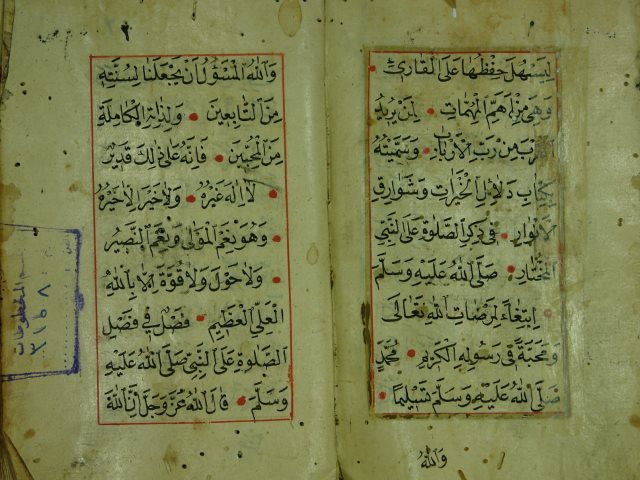 لِيَسْهُلَ حِفْظُهَا عَلَى الْقَارِئِ
وَهِيَ مِنْ اَهَمِّ الْمُهِمَّاتِ لِمَنْ يُرِيدُ
الْقُرْبَ مِنْ رَبِّ الْاَرْبَابِ وَسَمَّيْتُهُ
بِكِتَابِ دَلَائِلِ الْخَيْرَاتِ وَشَوَارِقِ
الْاَنْوَارِ فِي ذِكْرِ الصَّلٰوةِ عَلَى النَّبِيِّ
الْمُخْتَارِ صَلَّى اللهُ عَلَيْهِ وَسَلَّمَ
اِبْتِغَاءً لِمَرْضَاتِ اللهِ تَعَالٰى
وَمَحَبَّةً فِي رَسُولِهِ الْكَرِيمِ مُحَمَّدٍ
صَلَّى اللهُ عَلَيْهِ وَسَلَّمَ تَسْلِيمًا
وَاللهُ
وَاللهُ الْمَسْؤُلُ اَنْ يَجْعَلَنَا لِسُنَّتِهِ
مِنَ التَّابِعِينَ وَلِذَاتِهِ الْكَامِلَةِ
مِنَ الْمُحِبِّينَ فَاِنَّهُ عَلٰى ذٰلِكَ قَدِيرٌ
لَا اِلٰهَ غَيْرُهُ وَلَا خَيْرَ اِلَّا خَيْرُهُ
وَهُوَ نِعْمَ الْمَوْلٰى وَنِعْمَ النَّصِيرُ
وَلَا حَوْلَ وَلَا قُوَّةَ اِلَّا بِاللهِ
الْعَلِيِّ الْعَظِيمِ فَصْلٌ فِي فَضْلِ
الصَّلٰوةِ عَلَى النَّبِيِّ صَلَّى اللهُ عَلَيْهِ
وَسَلَّمَ قَالَ اللهُ عَزَّ وَجَلَّ اِنَّ اللهَ
المخطوطات
٣١٦٨